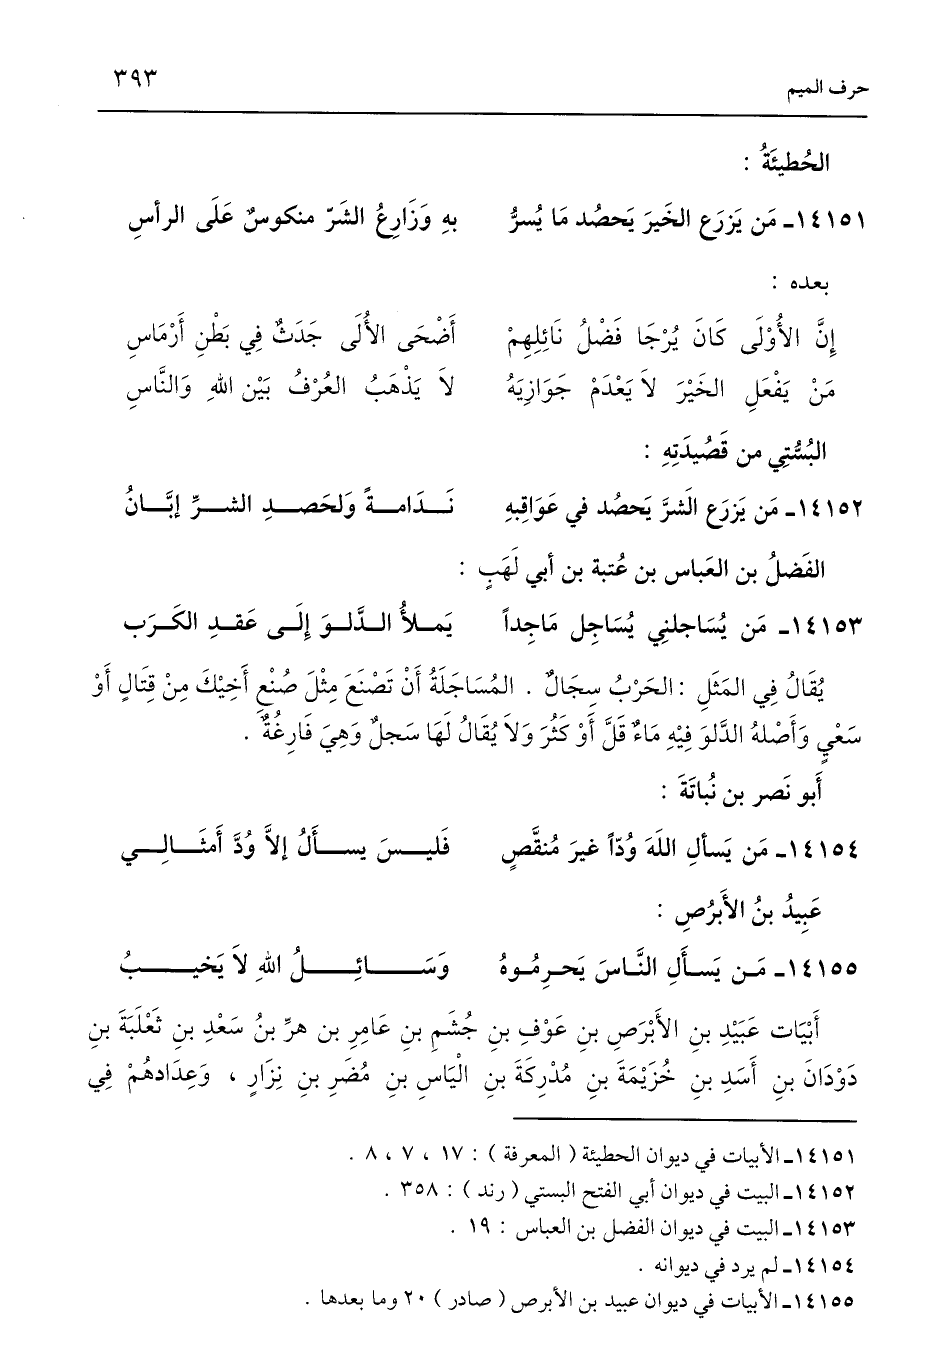 حرف الميم ٣٩٣
الحُطيئَةُ :
١٤١٥١ـ مَن يَزرَع الخَيرَ يَحصُد مَا يُسرُّ بهِ وَزَارِعُ الشَرّ منكوسٌ عَلَى الرأسِ
بعده :
إِنَّ الأُوْلَى كَانَ يُرْجَا فَضْلُ نَائِلِهِمْ أَضْحَى الأُلَى جَدَثٌ فِي بَطْنِ أَرْمَاسِ
مَنْ يَفْعَلِ الخَيْرَ لاَ يَعْدَمْ جَوَازِيَهُ لاَ يَذْهَبُ العُرْفُ بَيْن اللهِ وَالنَّاسِ
البُسُّتِي من قَصُيدَتِهِ :
١٤١٥٢ـ مَن يَزرَع الشَرَّ يَحصُد في عَوَاقِبهِ نَـدَامـةً وَلحَصـدِ الشـرِّ إبَّـانُ
الفَضلُ بن العَباس بن عُتبة بن أبي لَهَبٍ :
١٤١٥٣ـ مَن يُسَاجلنِي يُسَاجِل مَاجِداً يَملأُ الدَّلوَ إلَى عَقدِ الكَرَب
يُقَالُ فِي المَثَلِ : الحَرْبُ سِجَالٌ . المُسَاجَلَةُ أَنْ تَصْنَعَ مِثْلَ صُنْعِ أَخِيْكَ مِنْ قِتَالٍ أَوْ
سَعْيٍ وَأَصْلهُ الدَّلوَ فِيْهِ مَاءٌ قَلَّ أَوْ كَثُرَ وَلاَ يُقَالُ لَهَا سَجلٌ وَهِيَ فَارِغُةٌ .
أَبو نَصر بن نُباتَةَ :
١٤١٥٤ـ مَن يَسألِ اللهَ وُدّاً غيرَ مُنقَّصٍ فَليـسَ يسـأَلُ إلاَّ وُدَّ أَمثَـالِـي
عَبِيدُ بنُ الأَبَرُصِ :
١٤١٥٥ـ مَـن يَسـأَلِ النَّـاسَ يَحـرِمُـوهُ وَسَـائِـلُ اللهِ لاَ يَخيـبُ
أَبْيَات عَبَيْدِ بنِ الأَبْرَصِ بنِ عَوْفِ بنِ جُشَمِ بنِ عَامِرِ بن هرِّ بنُ سَعْدِ بنِ ثَعْلَبَةَ بنِ
دَوْدَانَ بنِ أَسَدِ بنِ خُزَيْمَةَ بنِ مُدْرِكَةَ بنِ الْيَاسِ بنِ مُضَرِ بنِ نِزَارٍ ، وَعِدَادهُمْ فِي
١٤١٥١ـ الأبيات في ديوان الحطيئة ( المعرفة ) : ١٧ ، ٧ ، ٨ .
١٤١٥٢ـ البيت في ديوان أبي الفتح البستي ( رند ) : ٣٥٨ .
١٤١٥٣ـ البيت في ديوان الفضل بن العباس : ١٩ .
١٤١٥٤ـ لم يرد في ديوانه .
١٤١٥٥ـ الأبيات في ديوان عبيد بن الأبرص ( صادر ) ٢٠ وما بعدها .